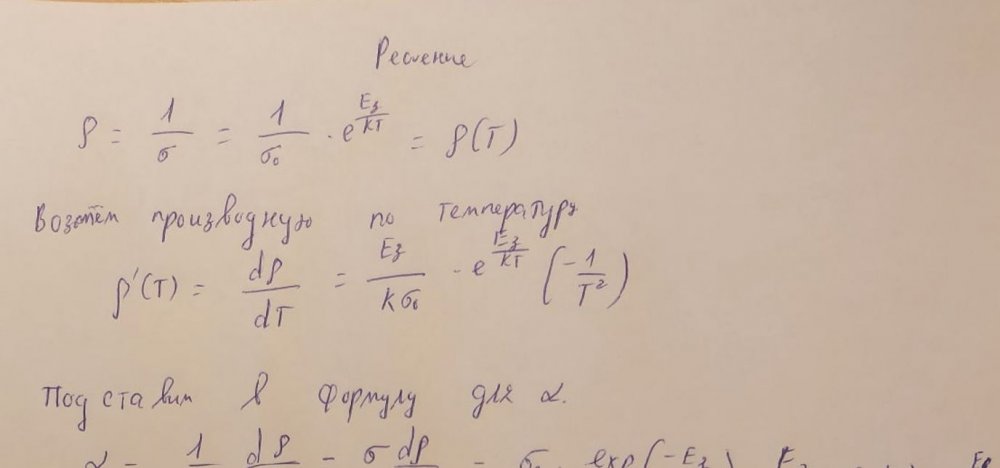 Решение
ρ = 1/σ = 1/σ₀ · e^(Eз/kT) = ρ(T)
Возьмём производную по температуре
ρ'(T) = dρ/dT = Eз/(kσ₀) · e^(Eз/kT) (-1/T²)
Подставим в формулу для α.
α = 1 dρ = σ dρ = σ₀ exp(-Eз) Eз